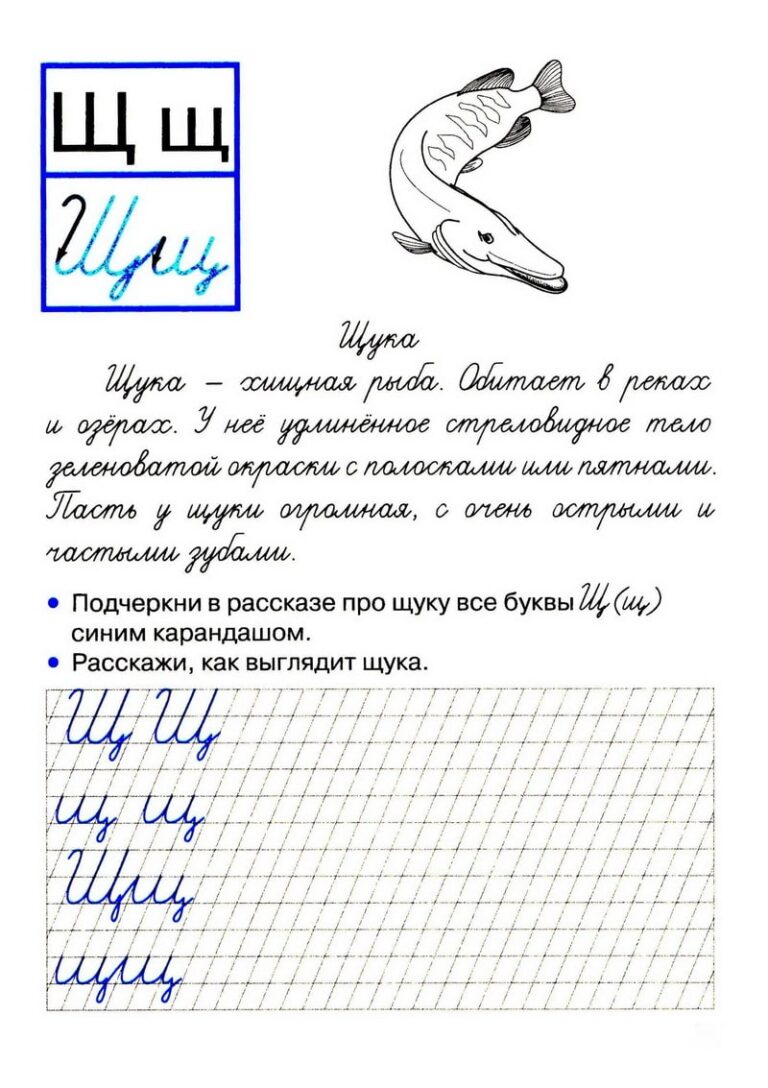 Щ щ
Щ щ
Щука
Щука – хищная рыба. Обитает в реках
и озёрах. У неё удлинённое стреловидное тело
зеленоватой окраски с полосками или пятнами.
Пасть у щуки огромная, с очень острыми и
частыми зубами.
• Подчеркни в рассказе про щуку все буквы Щ (щ)
синим карандашом.
• Расскажи, как выглядит щука.
Щ Щ
щ щ
Щщ
щщ